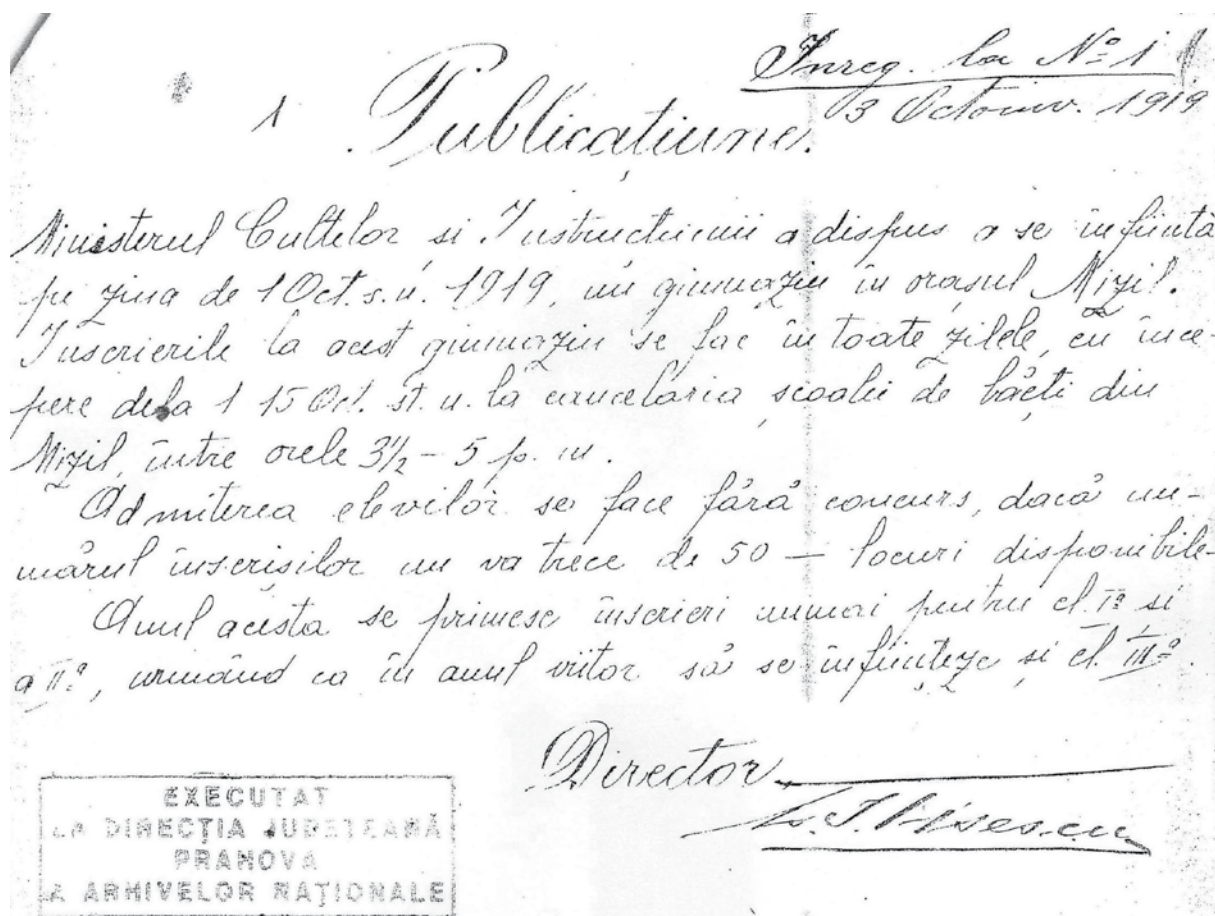 Înreg. la Nº 1
3 Octomv. 1919
1
Publicațiune.
Ministerul Cultelor si Instructiunii a dispus a se înființà
pe ziua de 1 Oct. s.n. 1919, un gimnaziu în orașul Mizil.
Inscrierile la acest gimnaziu se fac în toate zilele, cu ince-
pere dela 1 15 Oct. st. n. la cancelaria școalei de băeți din
Mizil, între orele 3½ – 5 p. m.
Admiterea elevilor se face fără concurs, dacă nu-
mărul înscrișilor nu va trece de 50 — locuri disponibile
Anul acesta se primesc inscrieri numai pentru cl. Iª si
a IIª, urmând ca în anul viitor să se înființeze și cl. IIIª.
Director
EXECUTAT
LA DIRECȚIA JUDEȚEANĂ
PRAHOVA
A ARHIVELOR NAȚIONALE